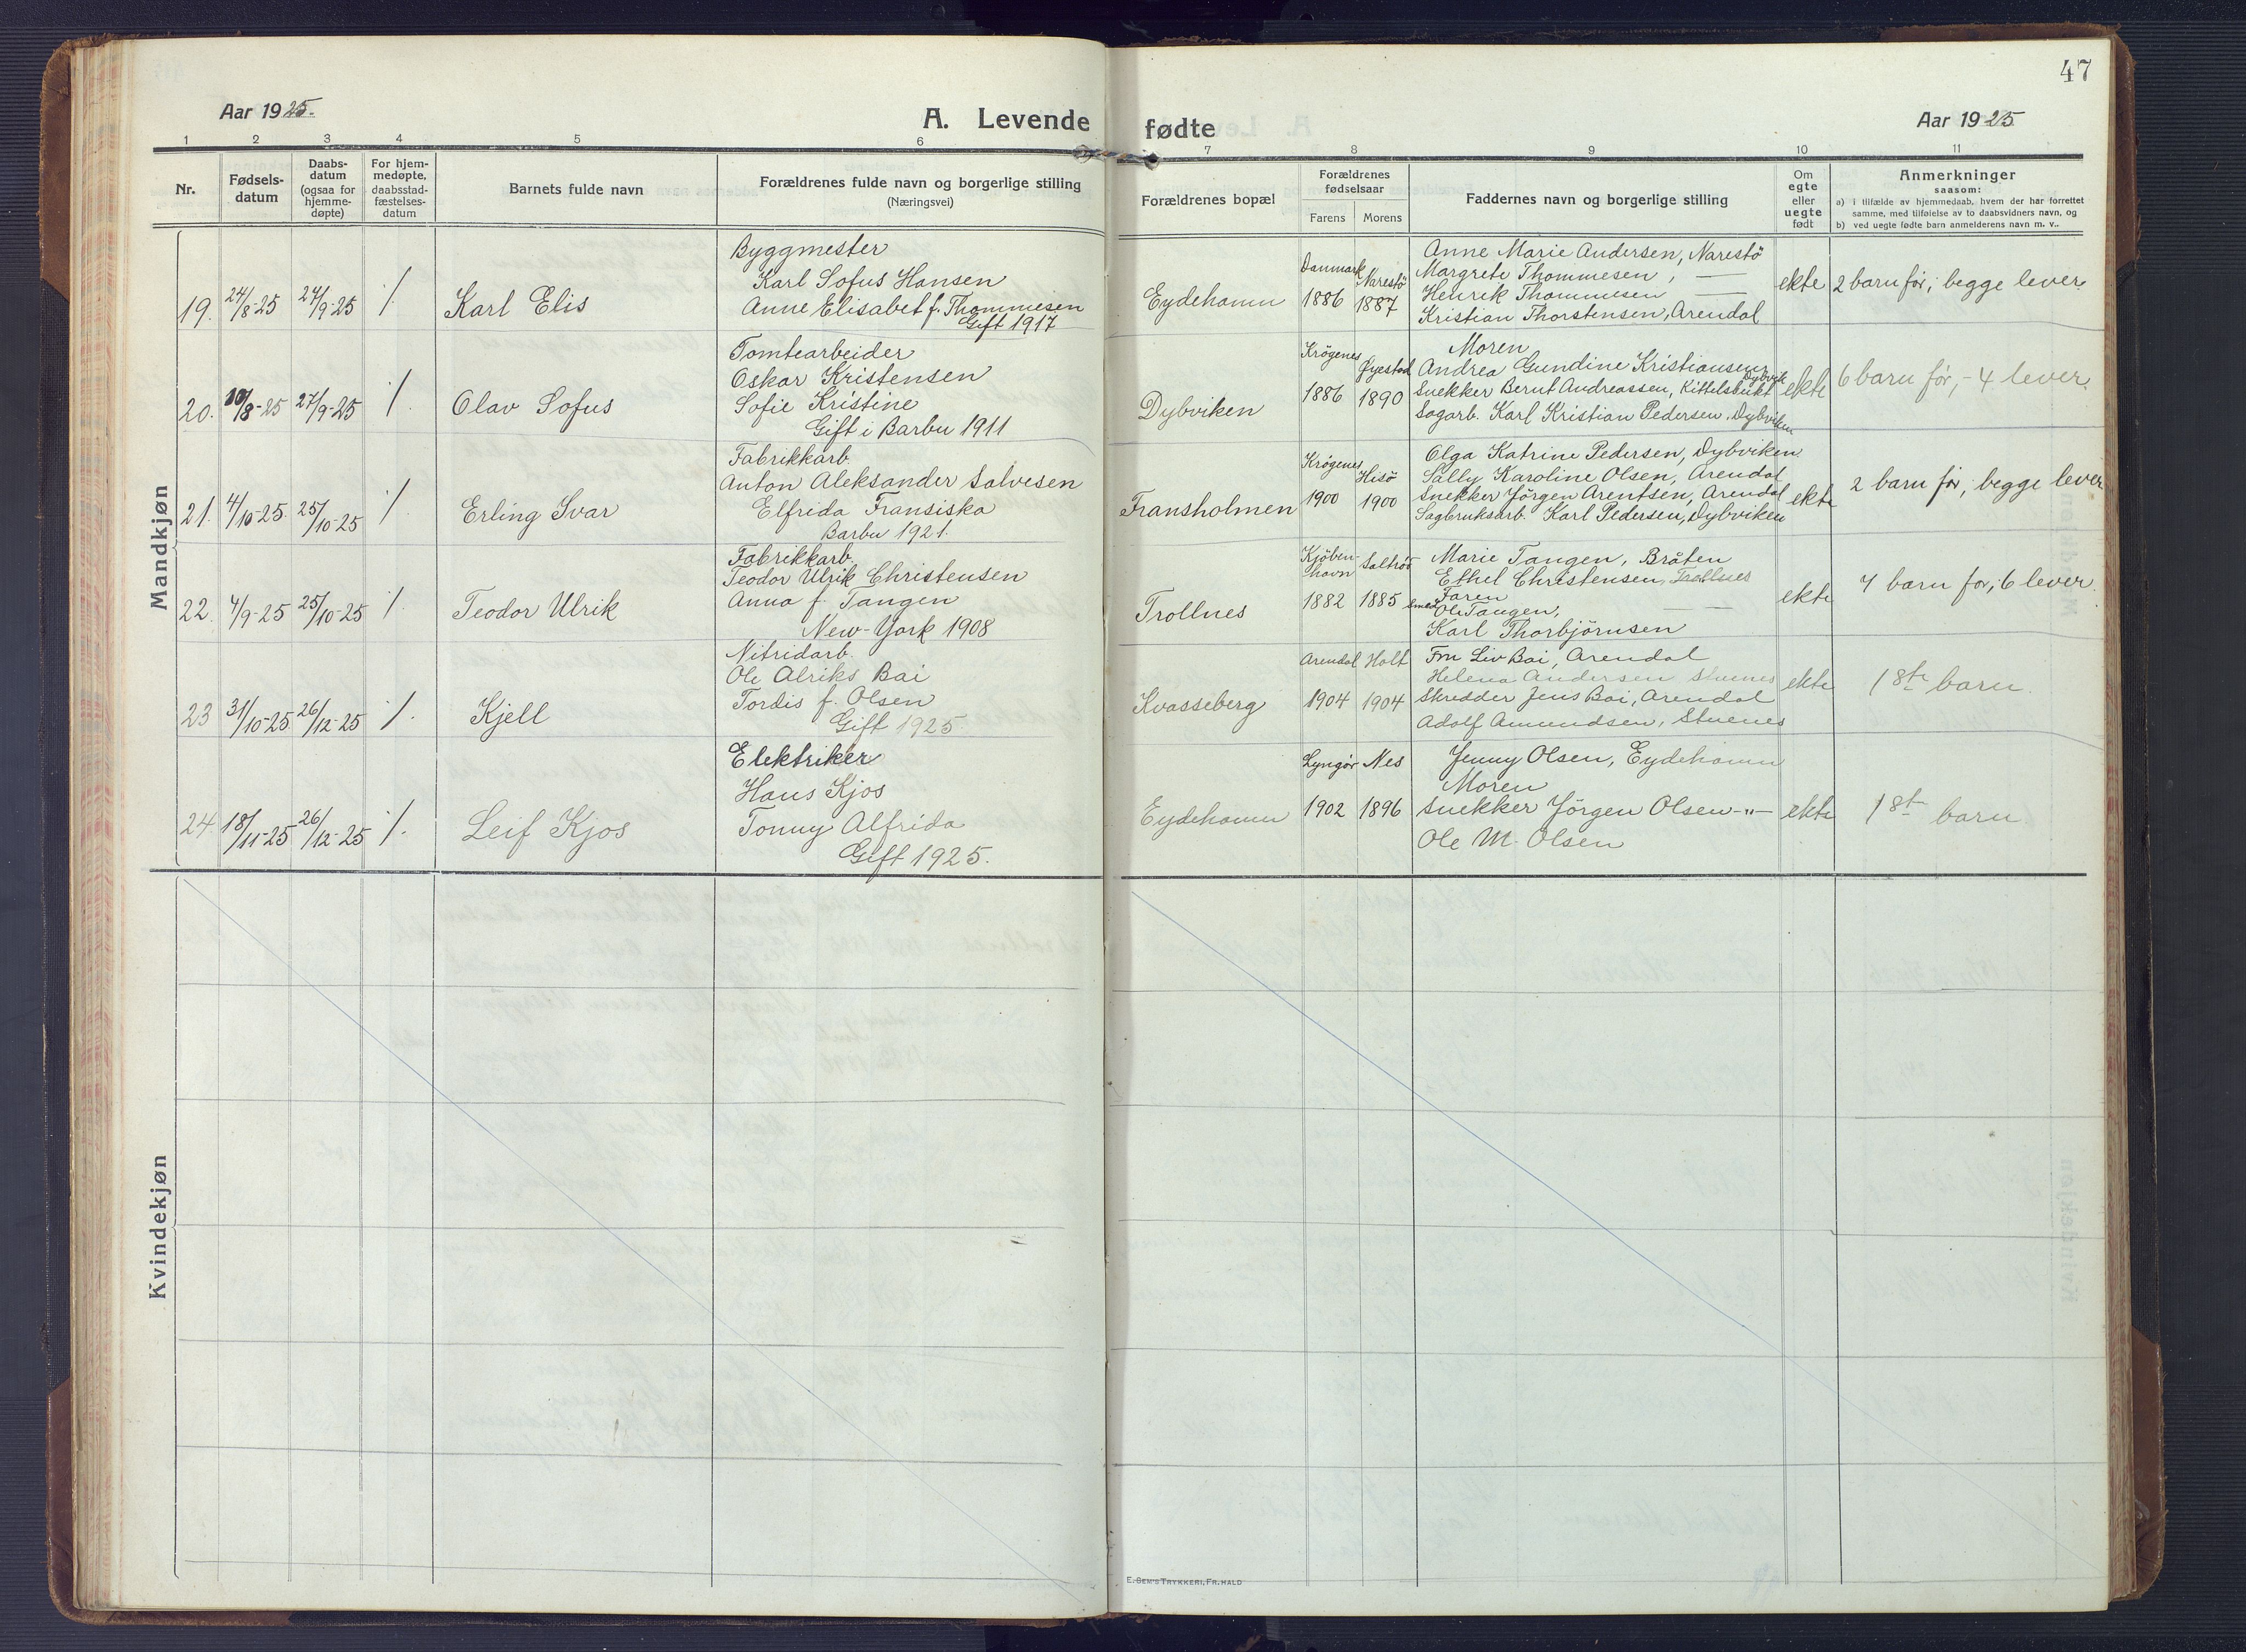 47
Aar 1925.
A. Levende fødte
Aar 1925
1 2 3 4 5 6 7 8 9 10 11
Nr.
Fødsels-
datum
Daabs-
datum
(ogsaa for
hjemme-
døpte)
For hjem-
medøpte,
daabsstad-
fæstelses-
datum
Barnets fulde navn
Forældrenes fulde navn og borgerlige stilling
(Næringsvei)
Forældrenes bopæl
Forældrenes
fødselsaar
Farens Morens
Faddernes navn og borgerlige stilling
Om
egte
eller
uegte
født
Anmerkninger
saasom:
a) i tilfælde av hjemmedaab, hvem der har forrettet
samme, med tilføielse av to daabsvidners navn, og
b) ved uegte fødte barn anmelderens navn m. v..
Mandkjøn
19. 24/8-25 27/9-25 /. Karl Elis
Byggmester
Karl Sofus Hansen
Anne Elisabet f. Thommesen
Gift 1917
Eydehamn
Danmark 1886
Narestö 1887
Anne Marie Andersen, Narestö
Margrete Thommesen, —
Henrik Thommesen —
Kristian Thorstensen, Arendal
ekte
2 barn før, begge lever.
20. 10/8-25 27/9-25 /. Olav Sofus
Tomtearbeider
Oskar Kristensen
Sofie Kristine
Gift i Barbu 1911
Dybviken
Krögenes 1886
Øyestad 1890
Moren
Andrea Gundine Kristiansen, Dybvik
Snekker Bernt Andreassen, Kittelsbukt
Sagarb. Karl Kristian Pedersen, Dybviken
ekte
6 barn før, - 4 lever.
21. 4/10-25. 25/10-25 /. Erling Ivar
Fabrikkarb.
Anton Aleksander Salvesen
Elfrida Fransiska
Barbu 1921.
Fransholmen
Krögenes 1900
Hisö 1900
Olga Katrine Pedersen, Dybviken
Sally Karoline Olsen, Arendal
Snekker Jörgen Arentsen, Arendal
Sagbruksarb. Karl Pedersen, Dybviken
ekte
2 barn før, begge lever
22. 4/9-25 25/10-25 /. Teodor Ulrik
Fabrikkarb.
Teodor Ulrik Christensen
Anna f. Tangen
New-York 1908
Trollnes
Kjöben-
havn 1882
Saltrö 1885
Marie Tangen, Bråten
Ethel Christensen, Trollnes
Faren
Ole Tangen, —
Karl Thorbjörnsen
ekte
7 barn før, 6 lever.
23 31/10-25 26/12-25 /. Kjell
Nitridarb.
Ole Alriks Bai
Tordis f. Olsen
Gift 1925
Kvasseberg
Arendal 1904
Holt 1904
Fru Liv Bai, Arendal
Helena Andersen Stuenes
Skredder Jens Bai, Arendal
Adolf Amundsen, Stuenes
ekte
1ste barn.
24 18/11-25 26/12-25 /. Leif Kjos
Elektriker
Hans Kjos
Tonny Alfrida
Gift 1925.
Eydehamn
Lyngör 1902
Nes 1896
Jenny Olsen, Eydehamn
Moren
Snekker Jörgen Olsen -"-
Ole M. Olsen
ekte
1ste barn
Kvindekjøn
E. Sem's Trykkeri, Fr.hald